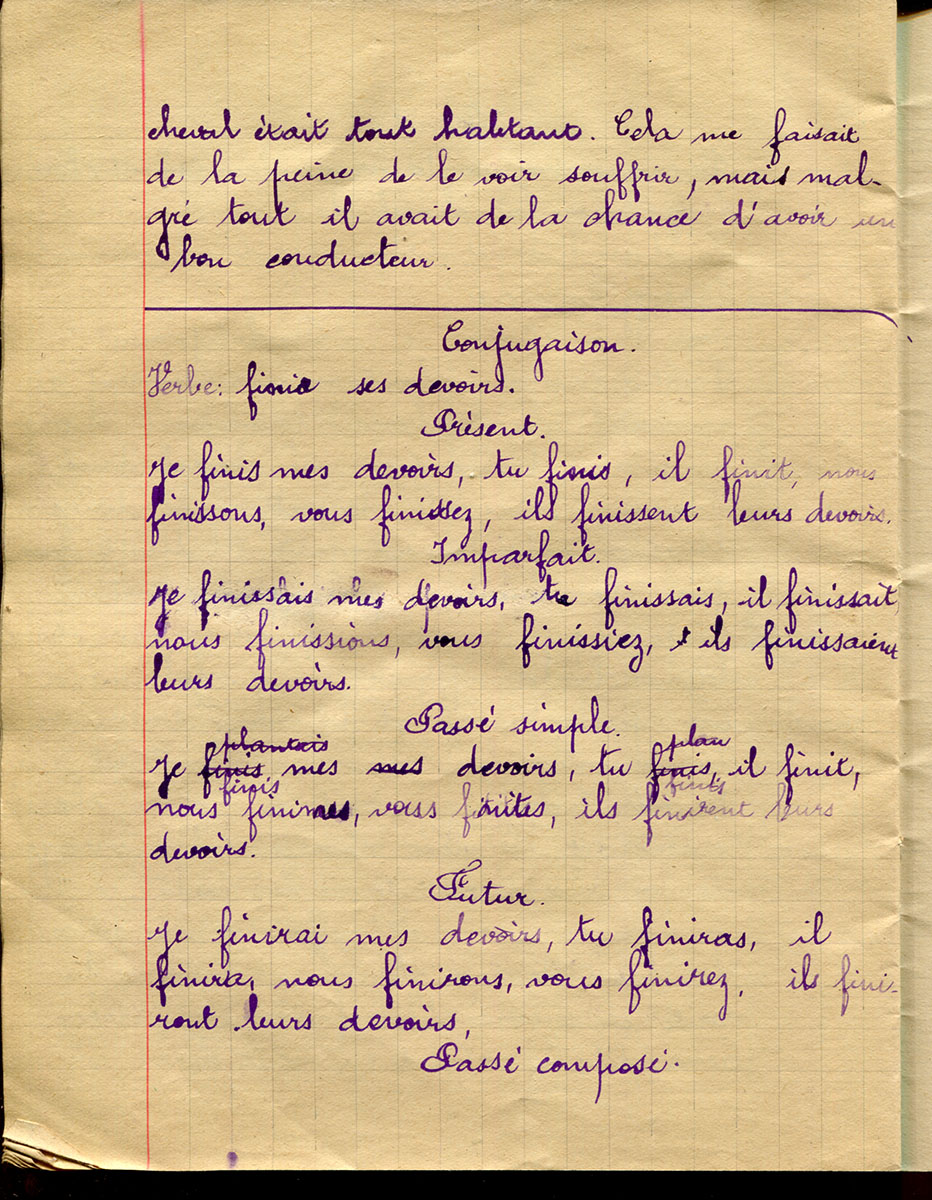 cheval était tout haletant. Cela me faisait
de la peine de le voir souffrir, mais mal-
gré tout il avait de la chance d'avoir un
bon conducteur.
Conjugaison.
Verbe: finir ses devoirs.
Présent.
Je finis mes devoirs, tu finis, il finit, nous
finissons, vous finissez, ils finissent leurs devoirs.
Imparfait.
Je finissais mes devoirs, tu finissais, il finissait
nous finissions, vous finissiez, ils finissaient
leurs devoirs.
Passé simple.
plantais plan
Je finis mes mes devoirs, tu finis, il finit,
finis finis
nous finimes, vous finites, ils finirent leurs
devoirs.
Futur.
Je finirai mes devoirs, tu finiras, il
finira, nous finirons, vous finirez, ils fini-
ront leurs devoirs,
Passé composé.